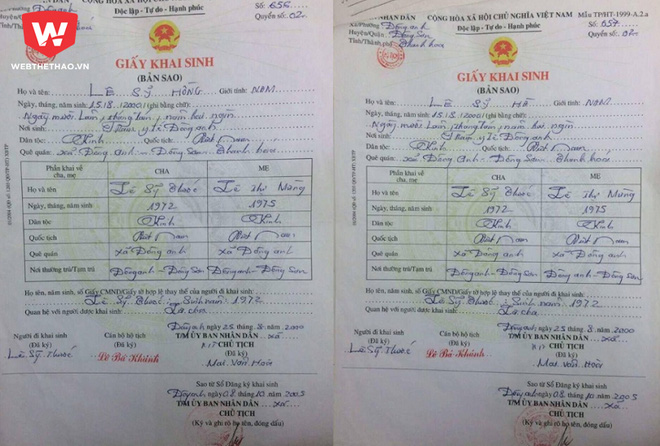 W!
WEBTHETHAO.VN
Xã/Phường Đông anh
CỘNG HÒA XÃ HỘI CHỦ NGHĨA VIỆT NAM
Độc lập - Tự do - Hạnh phúc
Số: 656
Quyển số: 02
GIẤY KHAI SINH
(BẢN SAO)
Họ và tên: LÊ SỸ HỒNG Giới tính: NAM
Ngày, tháng, năm sinh: 15.8.2000 (ghi bằng chữ):
Ngày mười Lăm, tháng tám, năm hai ngàn
Nơi sinh: Trạm y tế Đông anh
Dân tộc: Kinh Quốc tịch: Việt Nam
Quê quán: xã Đông Anh - Đông Sơn - Thanh hóa
Phần khai về cha, mẹ CHA MẸ
Họ và tên Lê Sỹ Thược Lê Thị Mừng
Ngày, tháng, năm sinh 1972 1975
Dân tộc Kinh Kinh
Quốc tịch Việt Nam Việt Nam
Quê quán xã Đông anh xã Đông anh
Nơi thường trú/Tạm trú Đông anh - Đông Sơn Đông anh - Đông Sơn
Họ tên, năm sinh, số Giấy CMND/Giấy tờ hợp lệ thay thế của người đi khai sinh:
Lê Sỹ Thược, Sinh năm 1972
Quan hệ với người được khai sinh: Là cha
Đông anh ngày 25 tháng 8 năm 2000
T/M ỦY BAN NHÂN DÂN xã
Người đi khai sinh Cán bộ hộ tịch CHỦ TỊCH
(Đã ký) (Đã ký) (Đã ký)
Lê Sỹ Thược Lê Bá Khánh Mai Văn Hoài
Sao từ Sổ Đăng ký khai sinh
Đông anh ngày 08 tháng 10 năm 2005
T/M ỦY BAN NHÂN DÂN xã
CHỦ TỊCH
(Ký và ghi rõ họ tên, đóng dấu)
NHÂN DÂN
CỘNG HÒA XÃ HỘI CHỦ NGHĨA VIỆT NAM
Mẫu TPHT-1999-A.2.a
Xã/Phường Đông anh
Độc lập - Tự do - Hạnh phúc
Số: 657
Huyện/Quận Đông Sơn
Quyển số: 02
Tỉnh/Thành phố Thanh hóa
GIẤY KHAI SINH
(BẢN SAO)
Họ và tên: LÊ SỸ HÀ Giới tính: NAM
Ngày, tháng, năm sinh: 15.8.2000 (ghi bằng chữ):
Ngày mười Lăm, tháng tám, năm hai ngàn
Nơi sinh: Trạm y tế Đông anh
Dân tộc: Kinh Quốc tịch: Việt Nam
Quê quán: xã Đông Anh - Đông Sơn - Thanh hóa
Phần khai về cha, mẹ CHA MẸ
Họ và tên Lê Sỹ Thược Lê Thị Mừng
Ngày, tháng, năm sinh 1972 1975
Dân tộc Kinh Kinh
Quốc tịch Việt Nam Việt Nam
Quê quán xã Đông anh xã Đông anh
Nơi thường trú/Tạm trú Đông anh - Đông Sơn Đông anh - Đông Sơn
Họ tên, năm sinh, số Giấy CMND/Giấy tờ hợp lệ thay thế của người đi khai sinh:
Lê Sỹ Thược, Sinh năm 1972
Quan hệ với người được khai sinh: Là cha
Đông anh ngày 25 tháng 8 năm 2000
T/M ỦY BAN NHÂN DÂN xã
Người đi khai sinh Cán bộ hộ tịch CHỦ TỊCH
(Đã ký) (Đã ký) (Đã ký)
Lê Sỹ Thược Lê Bá Khánh Mai Văn Hoài
Sao từ Sổ Đăng ký khai sinh
Đông anh ngày 08 tháng 10 năm 2005
T/M ỦY BAN NHÂN DÂN xã
CHỦ TỊCH
(Ký và ghi rõ họ tên, đóng dấu)